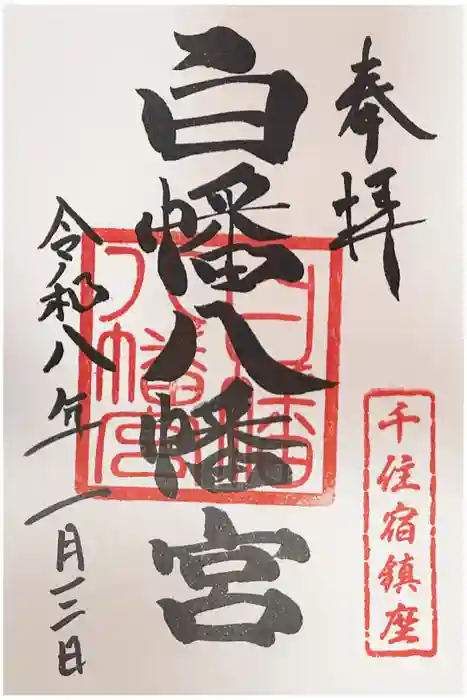 奉拝
千住宿鎮座
白幡八幡宮
令和八年一月三日